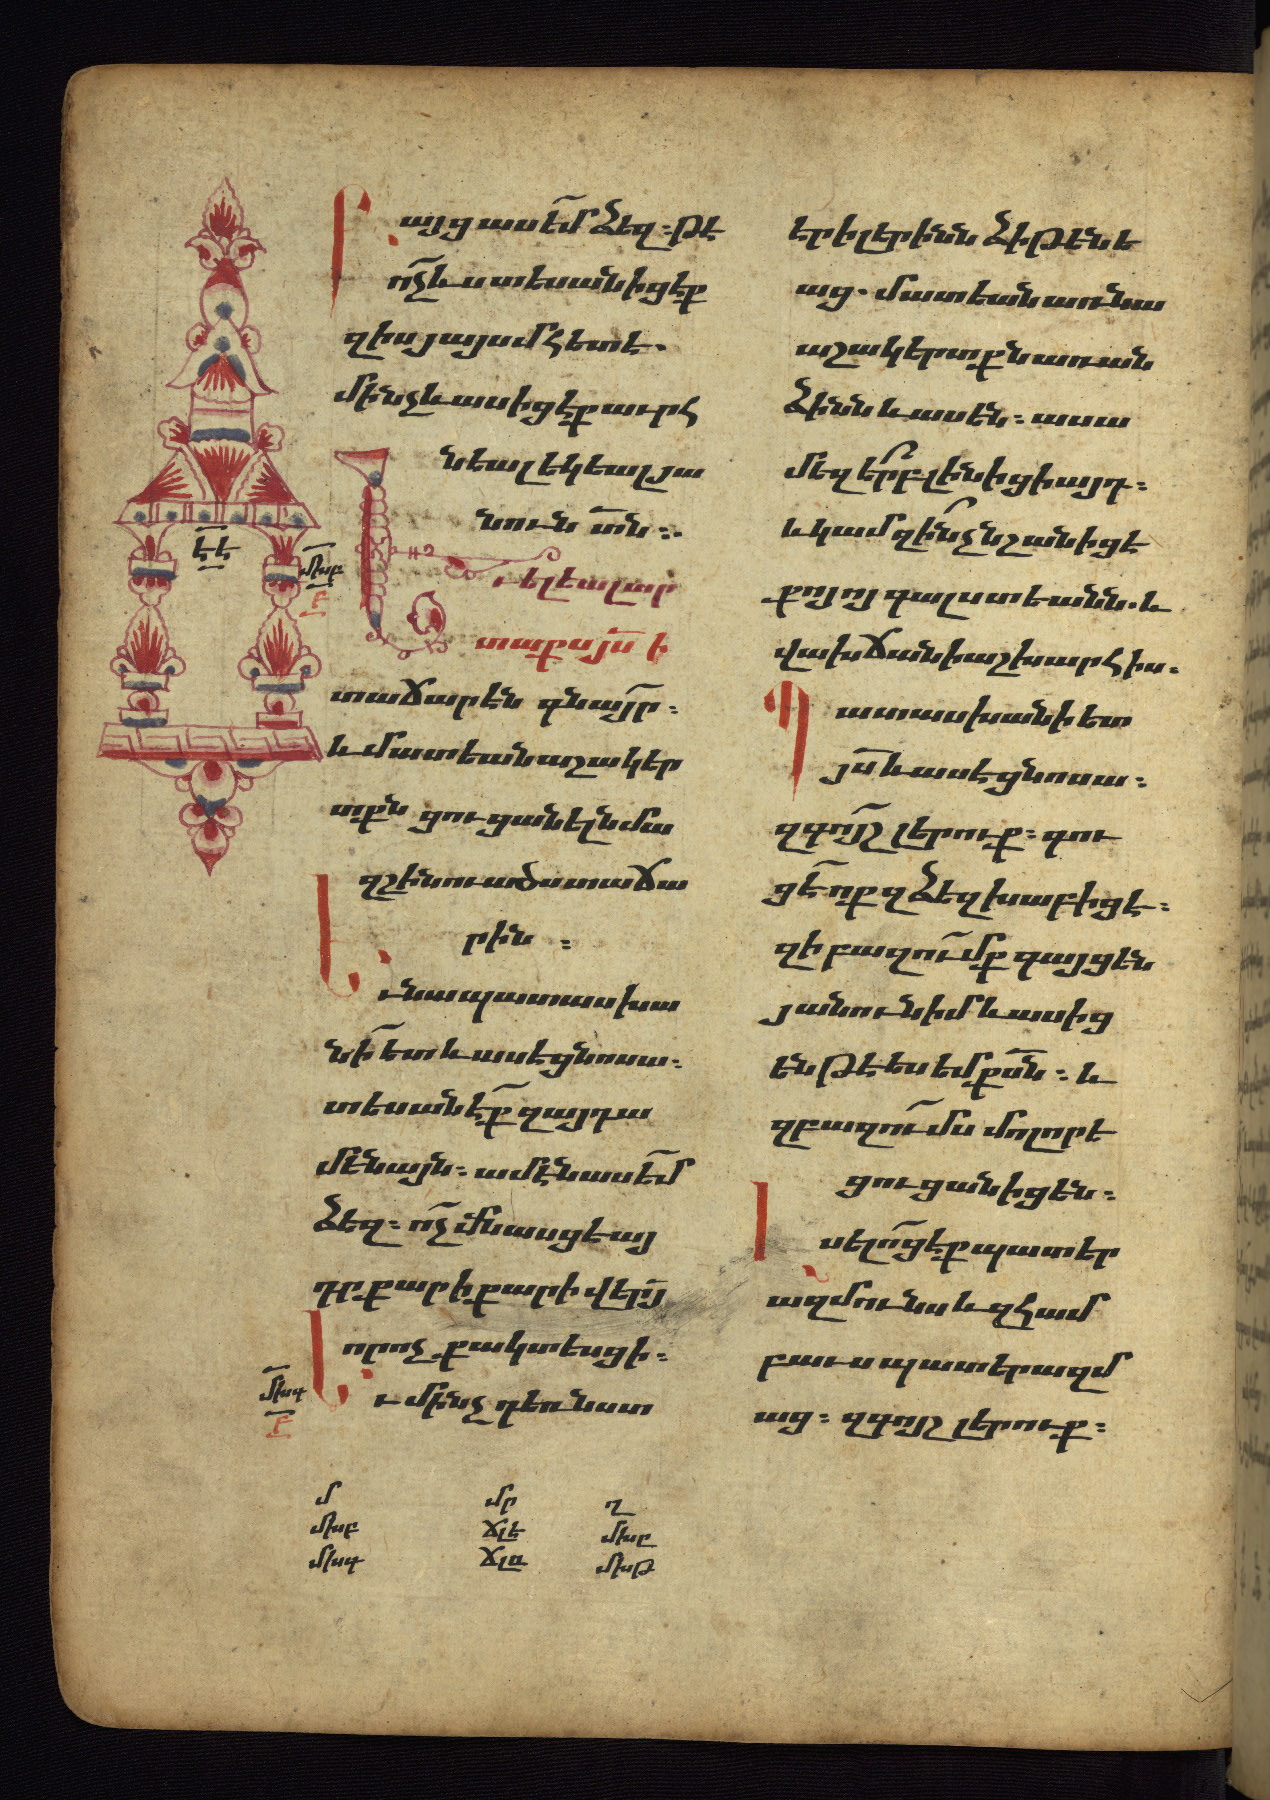 Բայց ասեմ ձեզ. թէ
ոչ ևս տեսանիցէք
զիս յայսմհետէ.
մինչև ասիցէք աւրհ
նեալ եկեալ յա
նուն տն:.
Ւ ելեալ ար
տաքս յս ի
տաճարէն գնայր.
և մատեան աշակեր
տքն ցուցանել նմա
զշինուած տաճա
րին :
Ւ նա պատասխա
նի ետ և ասէ ցնոսա.
տեսանէք զայդ ա
մենայն. ամէն ասեմ
ձեզ. ոչ մնասցէ այ
դր քար ի քարի վերյ
որ ոչ քակտեսցի.
Ւ մինչ դեռ նստ
էր ի լերինն ձիթենե
աց. մատեան առ նա
աշակերտքն առան
ձինն և ասեն. ասա
մեզ երբ լինիցի այդ.
և կամ զինչ նշան իցէ
քոյոյ գալստեանն. և
վախճանի աշխարհիս.
Պատասխանի ետ
յս և ասէ ցնոսա.
զգոյշ լերուք. գու
ցէ ոք զձեզ խաբիցէ.
զի բազումք գայցեն
յանուն իմ և ասից
են թէ ես եմ քսն. և
զբազումս մոլորե
ցուցանիցեն.
Լսելոց էք պատեր
ազմունս և զհամ
բաւս պատերազմ
աց. զգոյշ լերուք.
ԷԷ
մխբ
բ
մխգ
բ
մ մր ղ
մխբ ճլէ մխը
մխգ ճլը մխթ